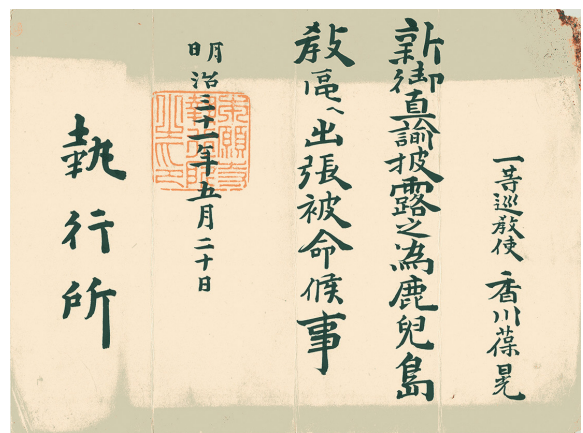 一等巡教使 香川葆晃
新御直諭披露之為鹿兒島
教區へ出張被命候事
明治三十一年五月二十日
執行所